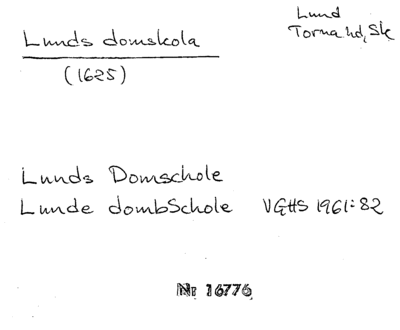 Lunds domskola
(1625)
Lund
Torna hd, Sk
Lunds Domschole
Lunde dombSchole VGHS 1961:82
Nr 16776